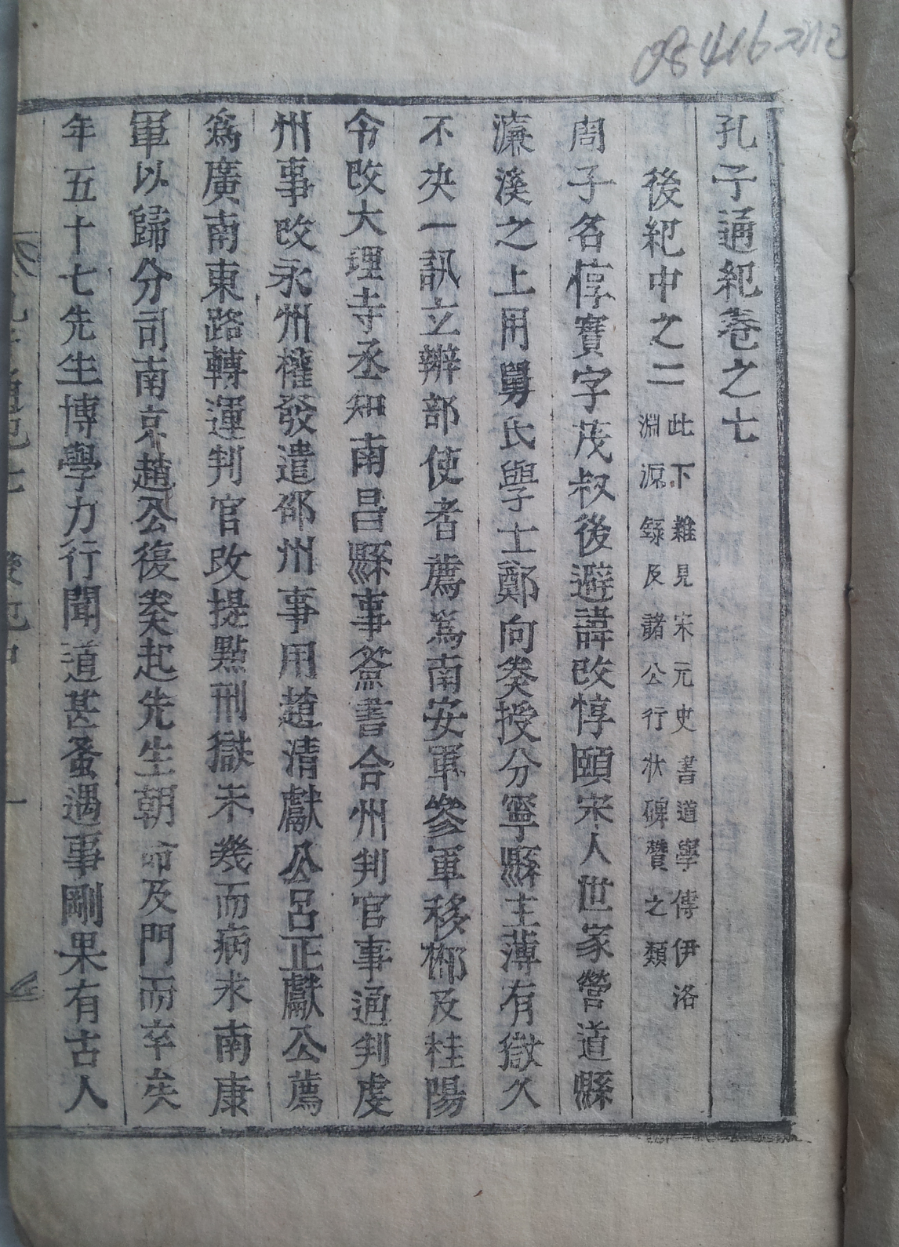 08416
孔子通紀卷之七
後紀中之二
此下雜見宋元史書道學傳伊洛
淵源錄及諸公行狀碑贊之類
周子名惇實字茂叔後避諱改惇頤宋人世家營道縣
濂溪之上用舅氏學士鄭向奏授分寧縣主薄有獄久
不決一訊立辨部使者薦爲南安軍叅軍移郴及桂陽
令改大理寺丞知南昌縣事簽書合州判官事通判虔
州事改永州權發遣邵州事用趙清獻公呂正獻公薦
爲廣南東路轉運判官改提點刑獄未幾而病求南康
軍以歸分司南京趙公復奏起先生朝命及門而卒矣
年五十七先生博學力行聞道甚蚤遇事剛果有古人